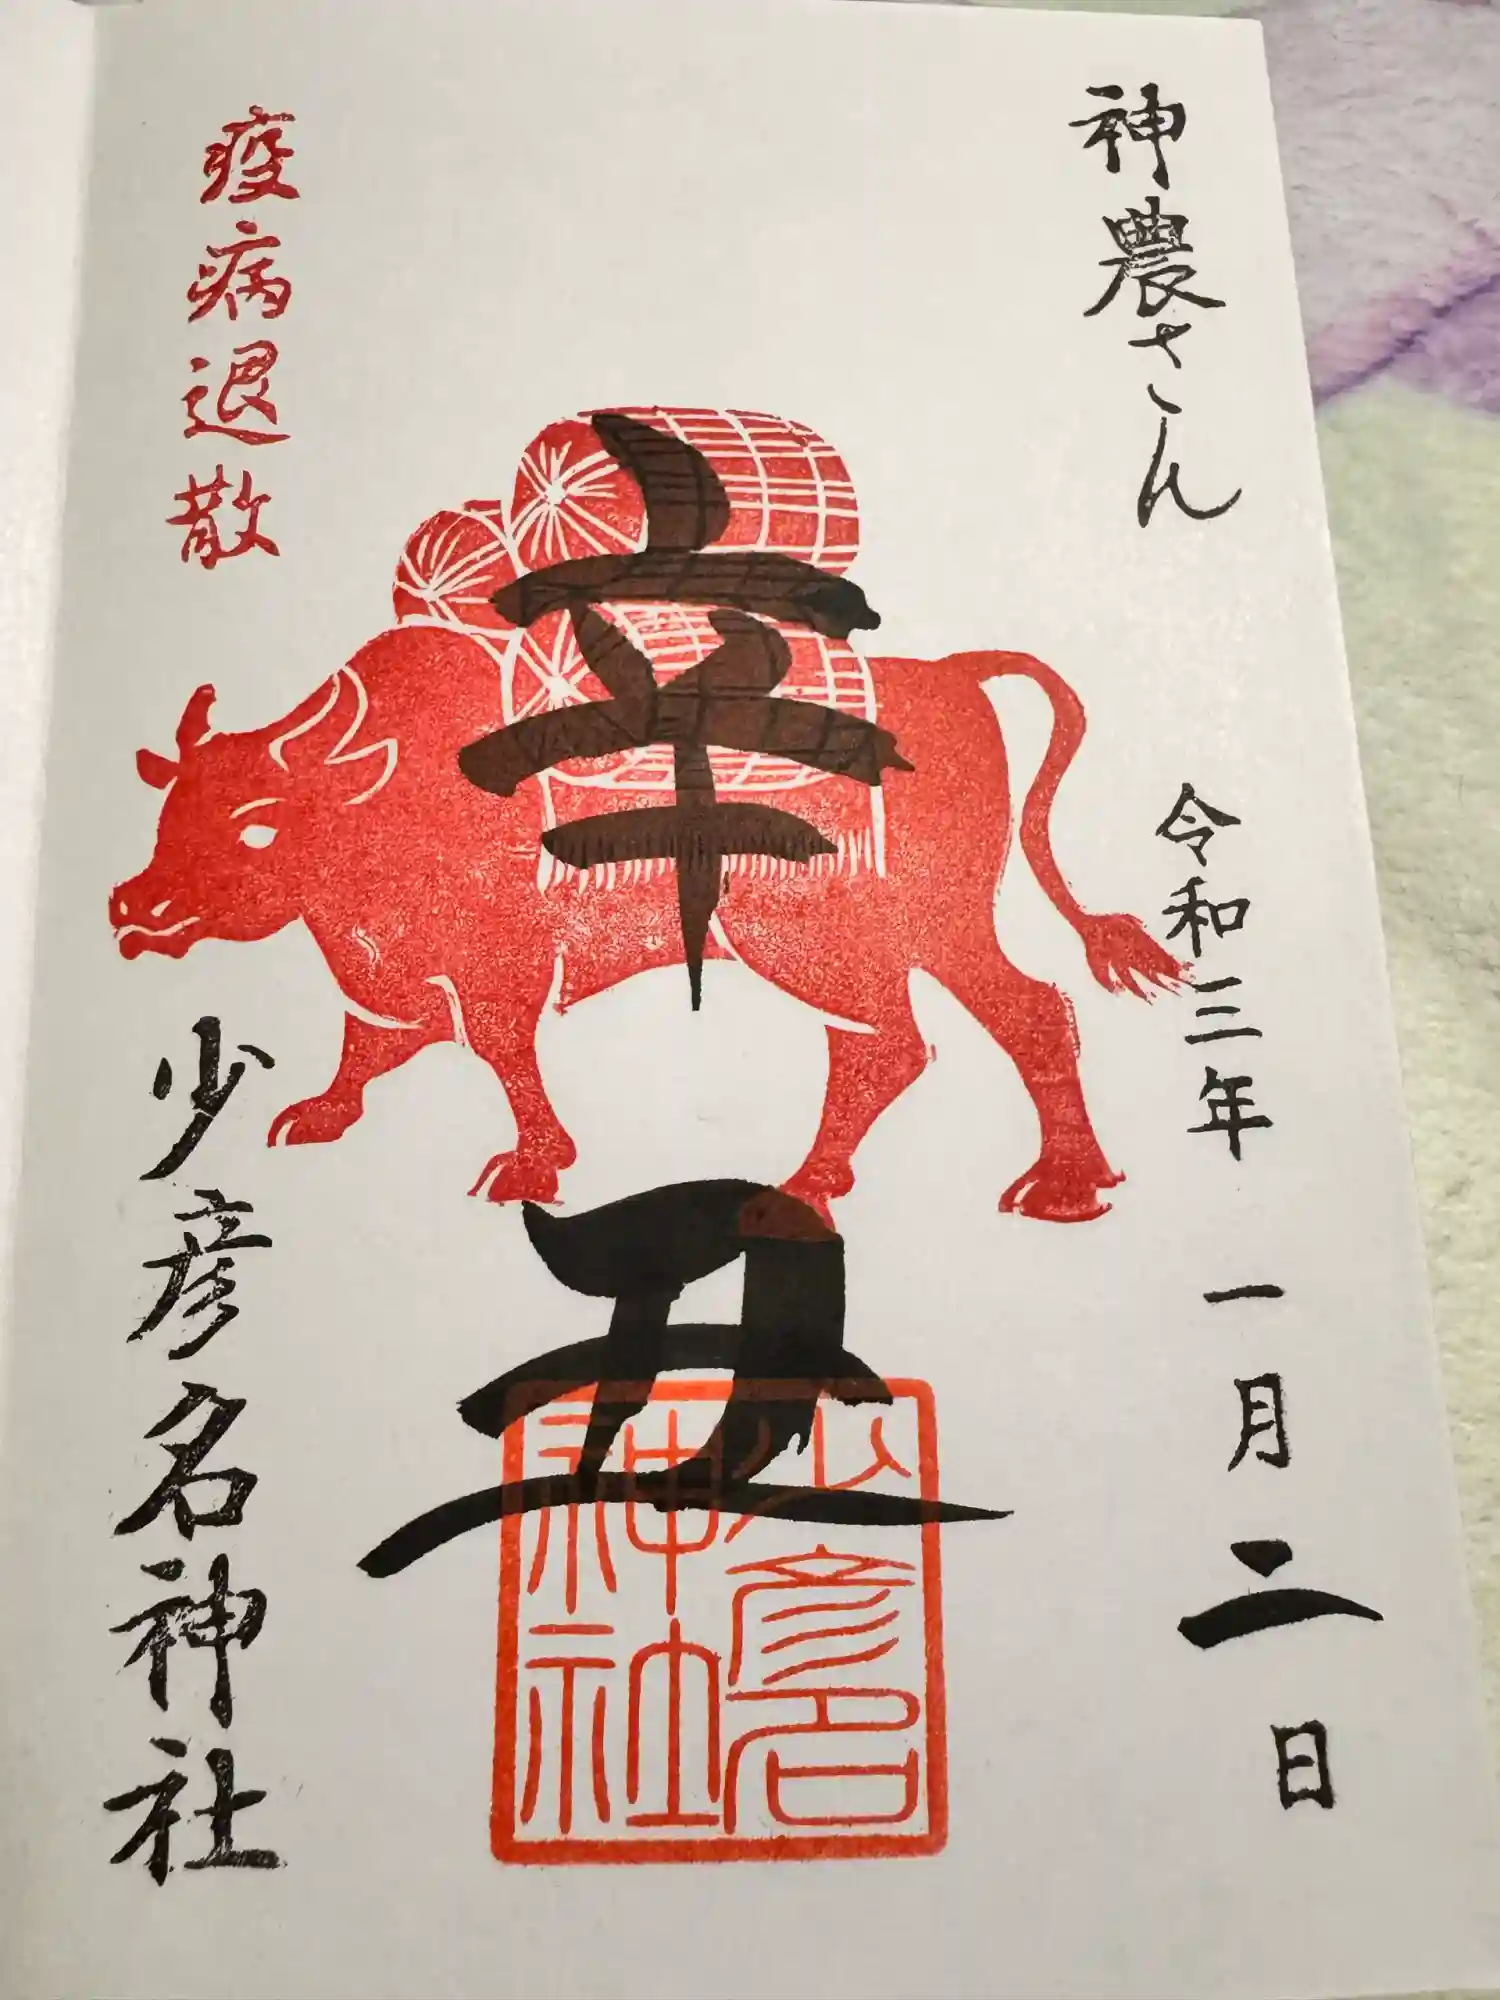 神農さん
令和三年 一月二日
辛丑
少彦名
神社
疫病退散
少彦名神社